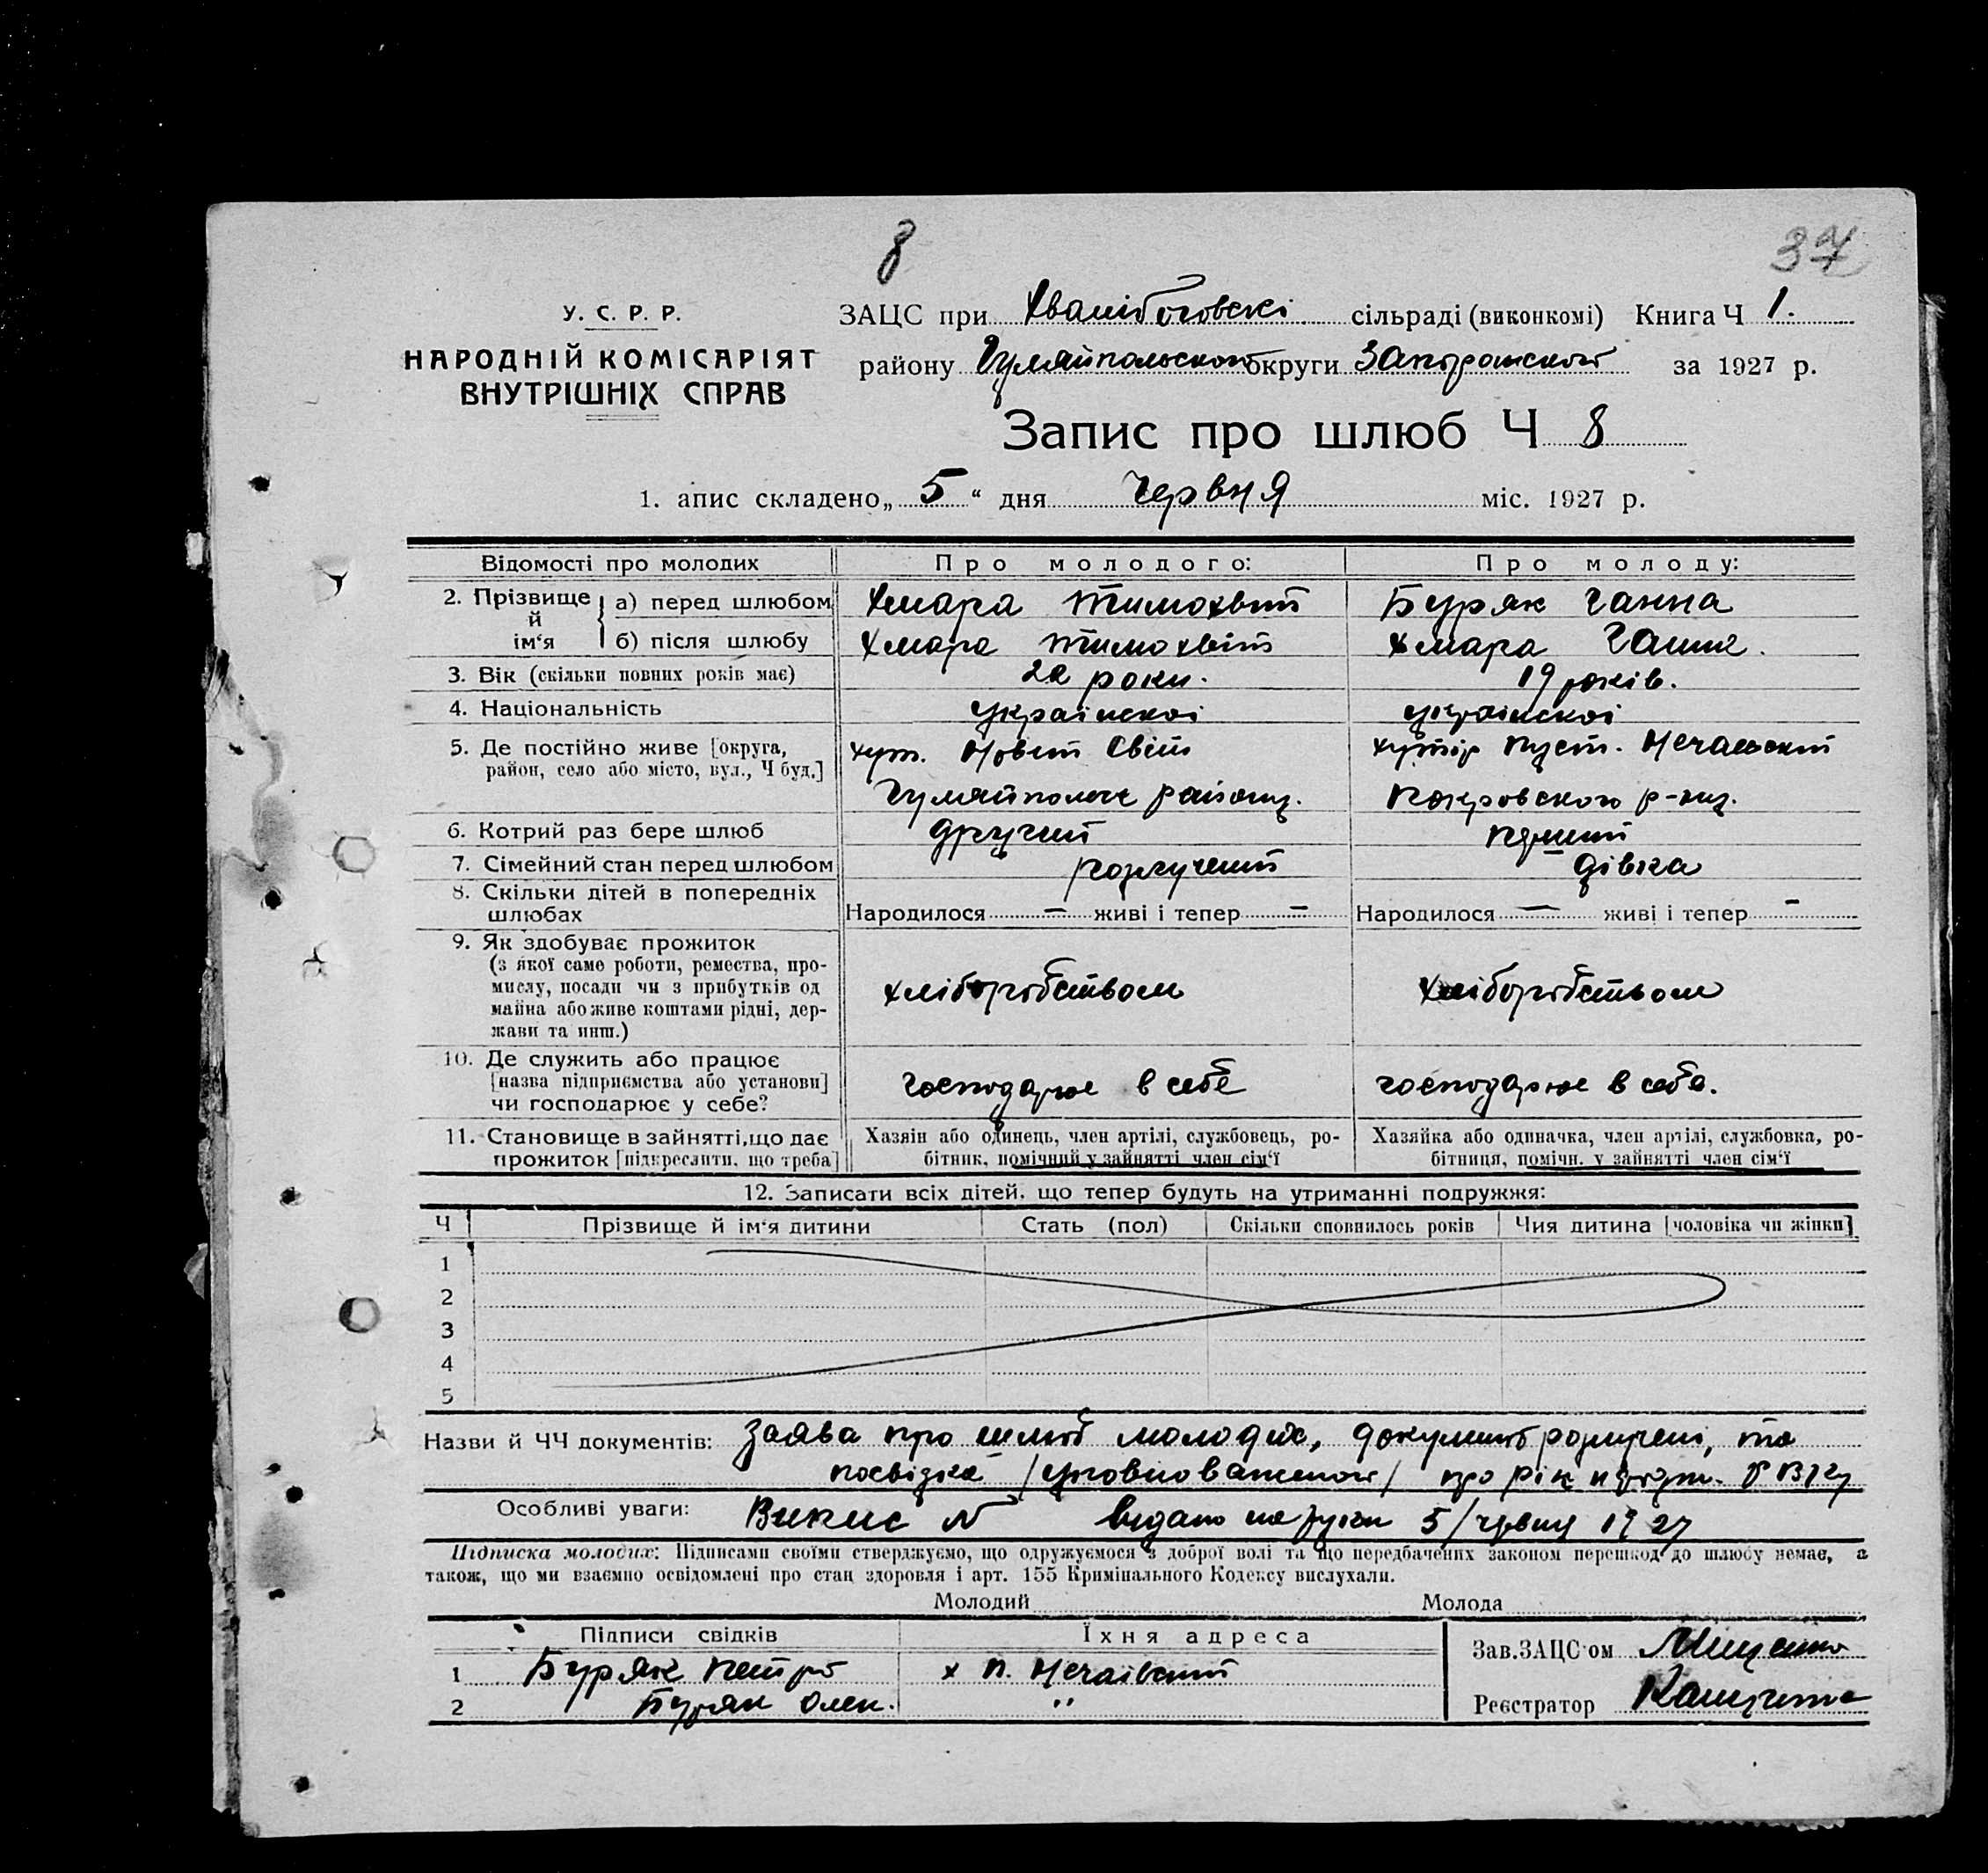 8
37
У. С. Р. Р.
НАРОДНІЙ КОМІСАРІЯТ
ВНУТРІШНІХ СПРАВ
ЗАЦС при сільраді (виконкомі) Книга Ч 1.
району Гуляйпольского округи Запорожского за 1927 р.
Запис про шлюб Ч 8
1. апис складено „ 5 “ дня Червня міс. 1927 р.
Відомості про молодих Про молодого: Про молоду:
2. Прізвище й ім‘я а) перед шлюбом Хмара Тимохвій Буряк Ганна
б) після шлюбу Хмара Тимохвій Хмара Ганна.
3. Вік (скільки повних років має) 22 роки. 19 років.
4. Національність Українскоі Українскоі
5. Де постійно живе [округа, хут. Новий Світ хутір Пуст. Нечаевский
район, село або місто, вул., Ч буд.]
Гуляйпольск району. Покровского р-ну.
6. Котрий раз бере шлюб другий перший
7. Сімейний стан перед шлюбом розлучений дівка
8. Скільки дітей в попередніх
шлюбах Народилося — живі і тепер — Народилося — живі і тепер -
9. Як здобуває прожиток
(з якої саме роботи, ремества, про-
мислу, посади чи з прибутків од хліборобством хліборобством
майна або живе коштами рідні, дер-
жави та инш.)
10. Де служить або працює
[назва підприємства або установи] господарює в себе господарює в себе.
чи господарює у себе?
11. Становище в зайнятті, що дає Хазяін або одинець, член артілі, службовець, ро- Хазяйка або одиначка, член артілі, службовка, ро-
прожиток [підкреслити, що треба] бітник, помічний у зайнятті член сім‘ї бітниця, помічн. у зайнятті член сім‘ї
12. Записати всіх дітей, що тепер будуть на утриманні подружжя:
Ч Прізвище й ім‘я дитини Стать (пол) Скільки сповнилось років Чия дитина [чоловіка чи жінки]
1
2
3
4
5
Назви й ЧЧ документів: Заява про шлюб молодих, документ розлучені, та
посвідка /уповноваженого/ про рік
Особливі уваги: Випис № видано на руки 5/червня 1927
Підписка молодих: Підписами своїми стверджуємо, що одружуємося з доброї волі та що передбачених законом перешкод до шлюбу немає, а
також, що ми взаємно освідомлені про стан здоровля і арт. 155 Кримінального Кодексу вислухали.
Молодий Молода
Підписи свідків Їхня адреса Зав. ЗАЦС‘ом Мищенко
1 Буряк Петро х П. Нечаівский
2 Буряк Олек. " Реєстратор